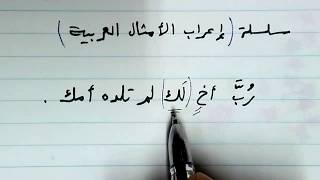 سلسلة (إعراب الأمثال العربية)
رُبَّ أخٍ (لَكَ) لم تلده أمك .